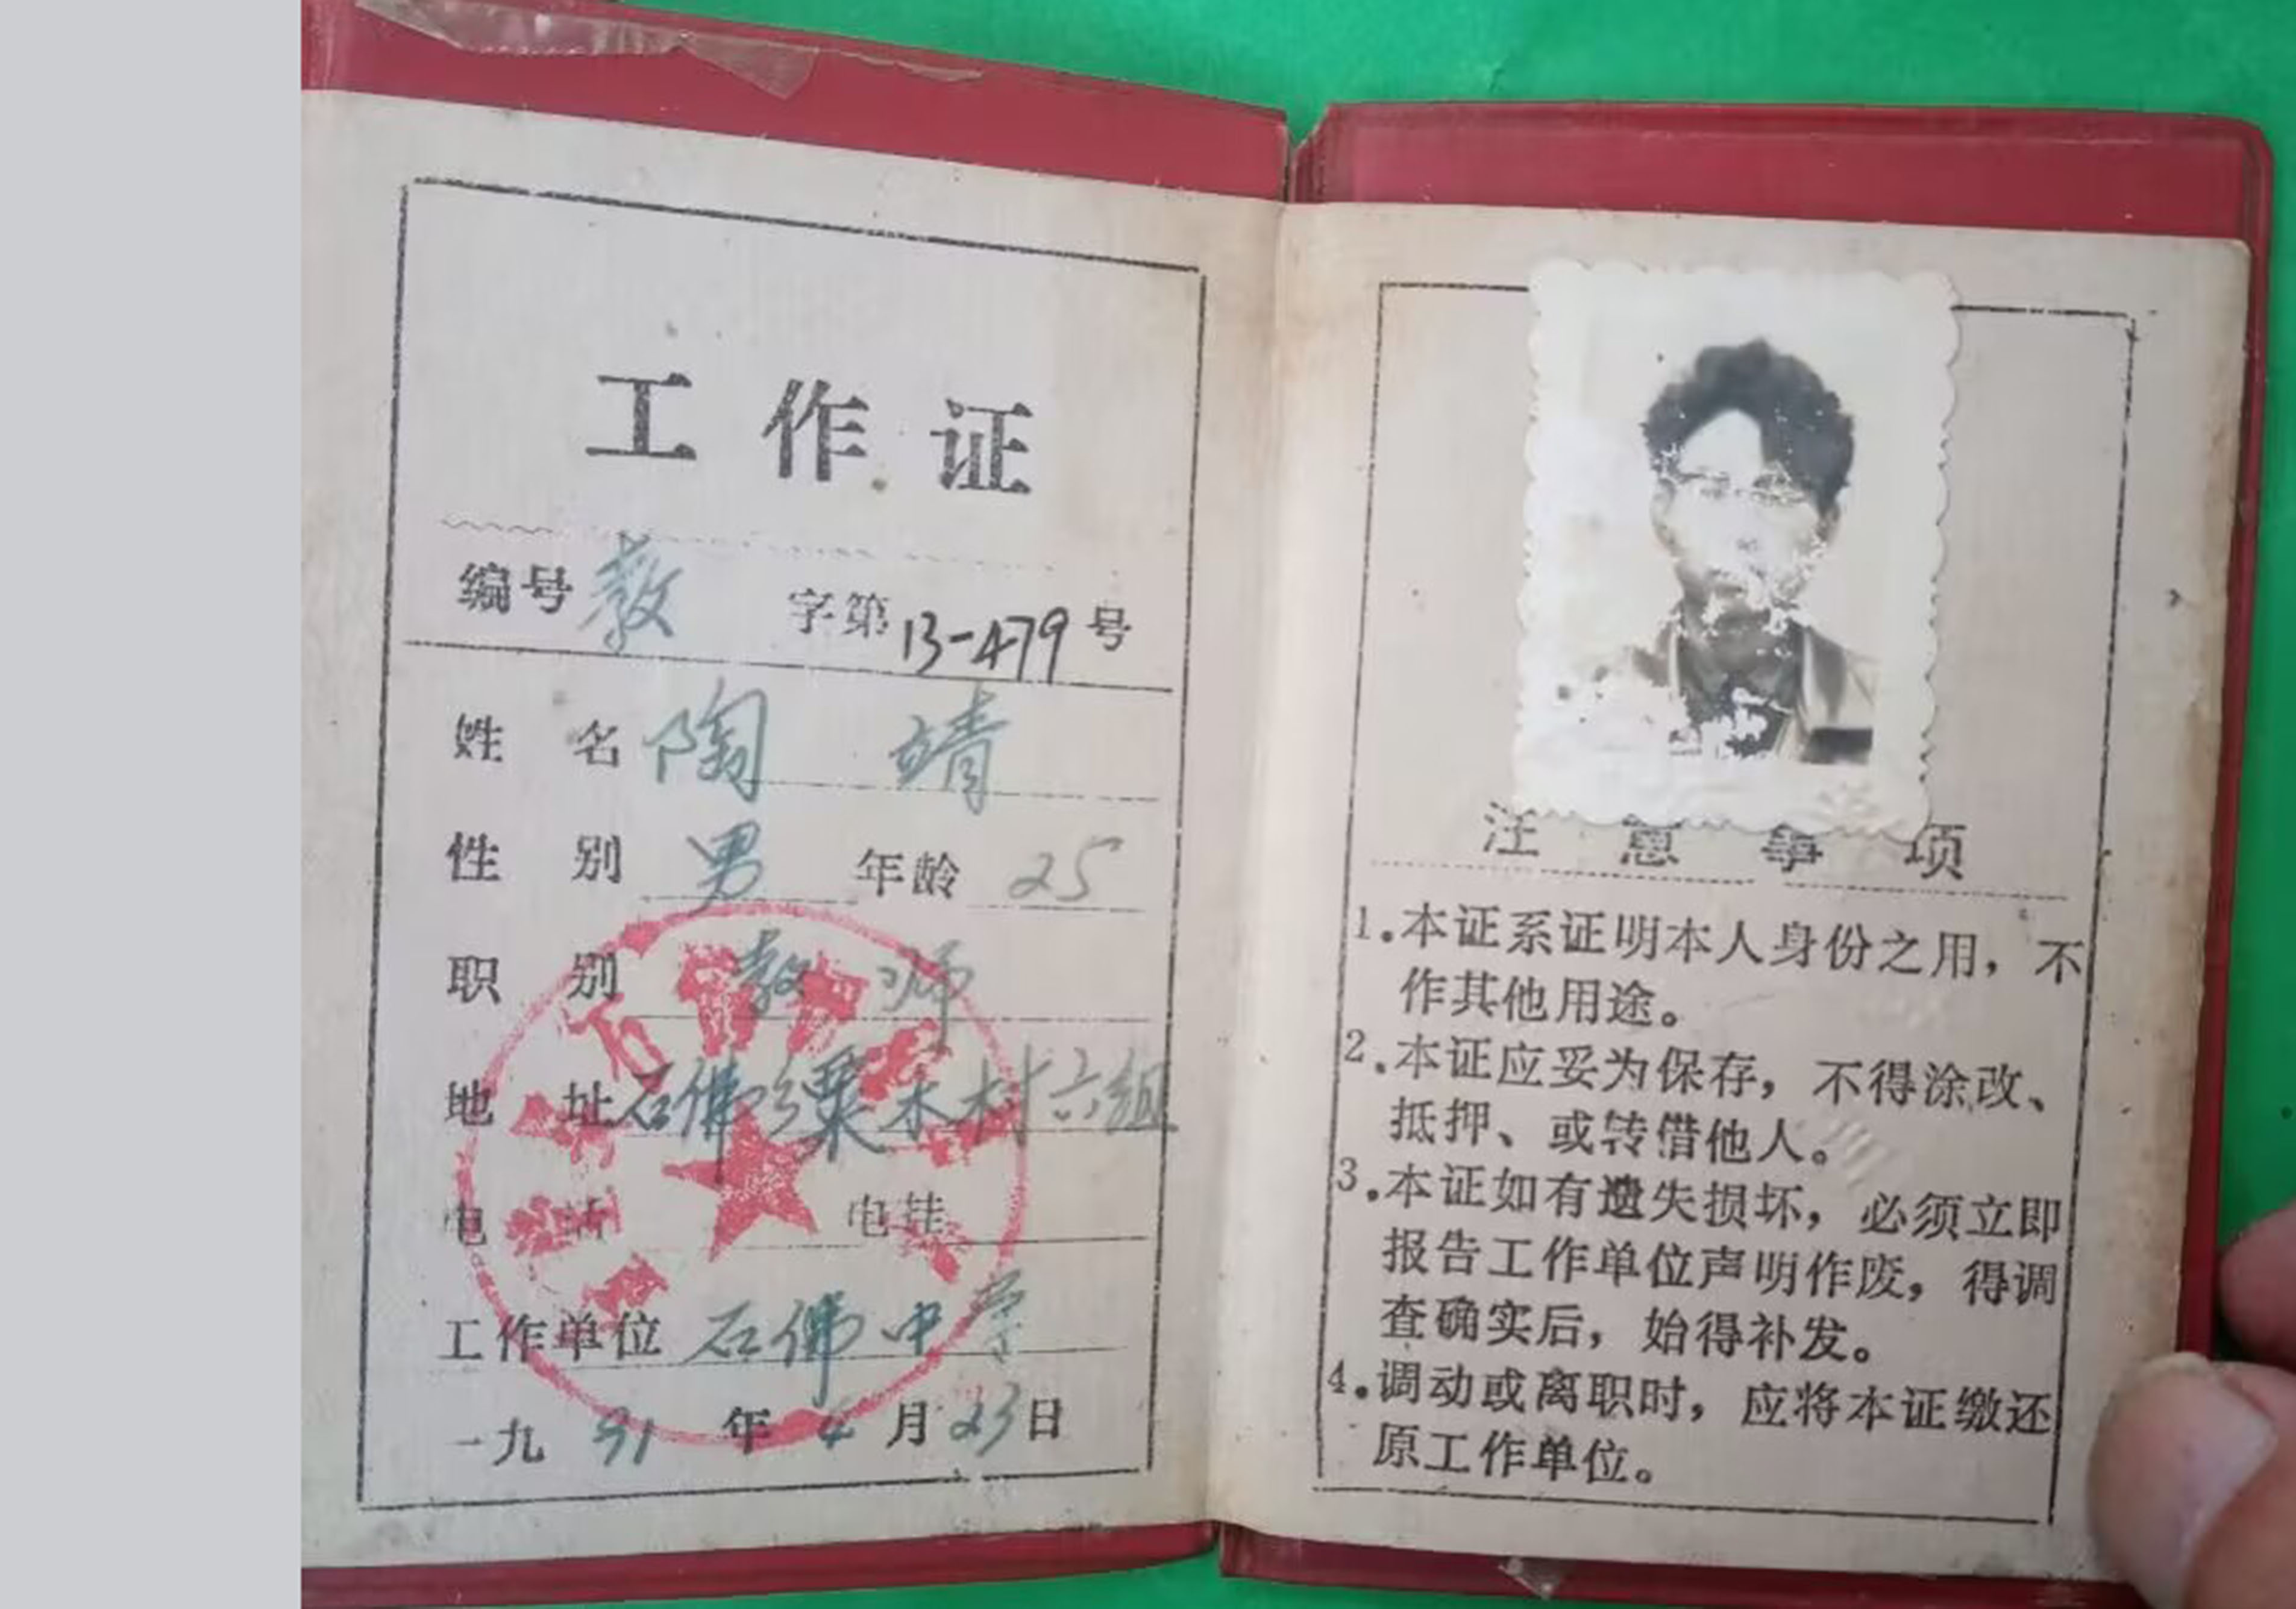 工作证
编号 教 字第 13-479 号
姓名 陶靖
性别 男 年龄 25
职别 教师
地址 石佛乡粟木村六组
电话 电挂
工作单位 石佛中学
一九91年4月23日
注意事项
1.本证系证明本人身份之用，不
作其他用途。
2.本证应妥为保存，不得涂改、
抵押、或转借他人。
3.本证如有遗失损坏，必须立即
报告工作单位声明作废，得调
查确实后，始得补发。
4.调动或离职时，应将本证缴还
原工作单位。